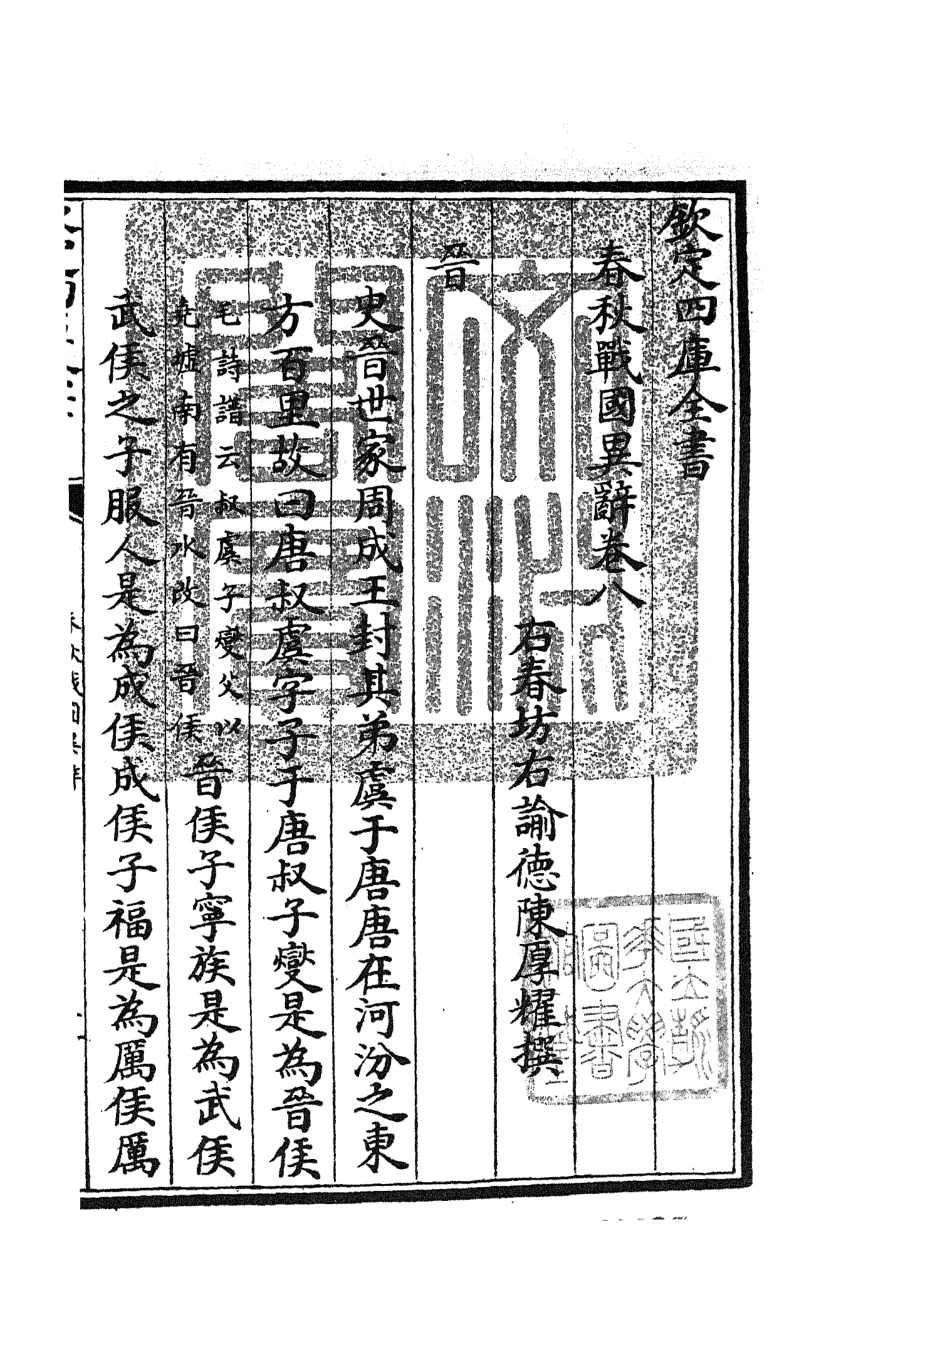 欽定四庫全書
春秋戰國異辭卷八
右春坊右諭德陳厚耀撰
晉
史晉世家周成王封其弟虞于唐唐在河汾之東
方百里故曰唐叔虞字子于唐叔子燮是為晉侯
毛詩譜云叔虞子燮父以
堯墟南有晉水改曰晉侯
晉侯子寧族是為武侯
武侯之子服人是為成侯成侯子福是為厲侯厲